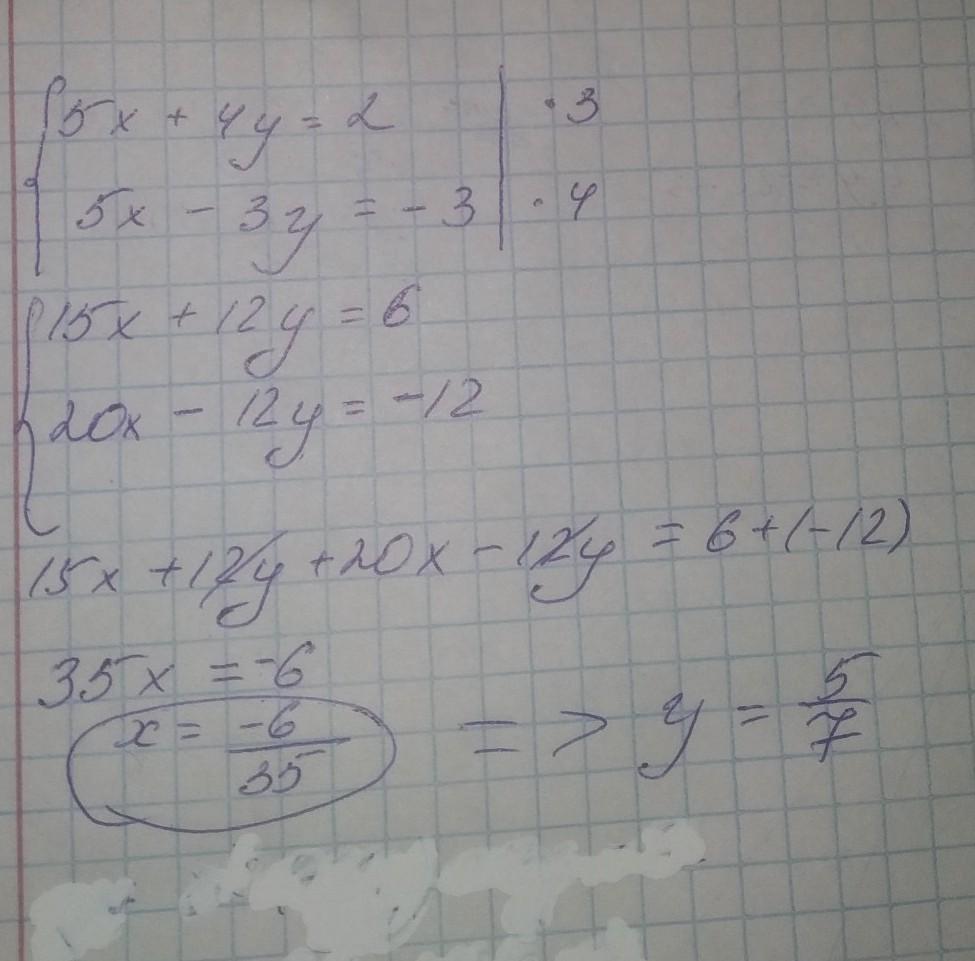 5x + 4y = 2 | · 3
5x - 3y = - 3 | · 4
15x + 12y = 6
20x - 12y = -12
15x + 12y + 20x - 12y = 6 + (-12)
35x = -6
x = -6/35 => y = 5/7